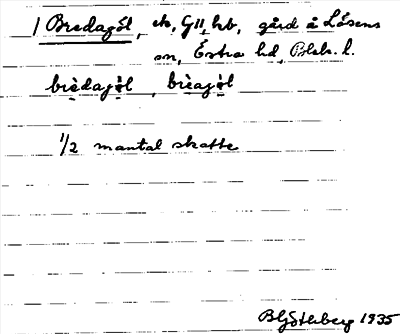 1 Bredagöl, ek, GII, hb, gård å Lösens
sn, Östra hd, Blek. l.
brèdagø̀l, brèagø̀l
1/2 mantal skatte
B Göthberg 1935